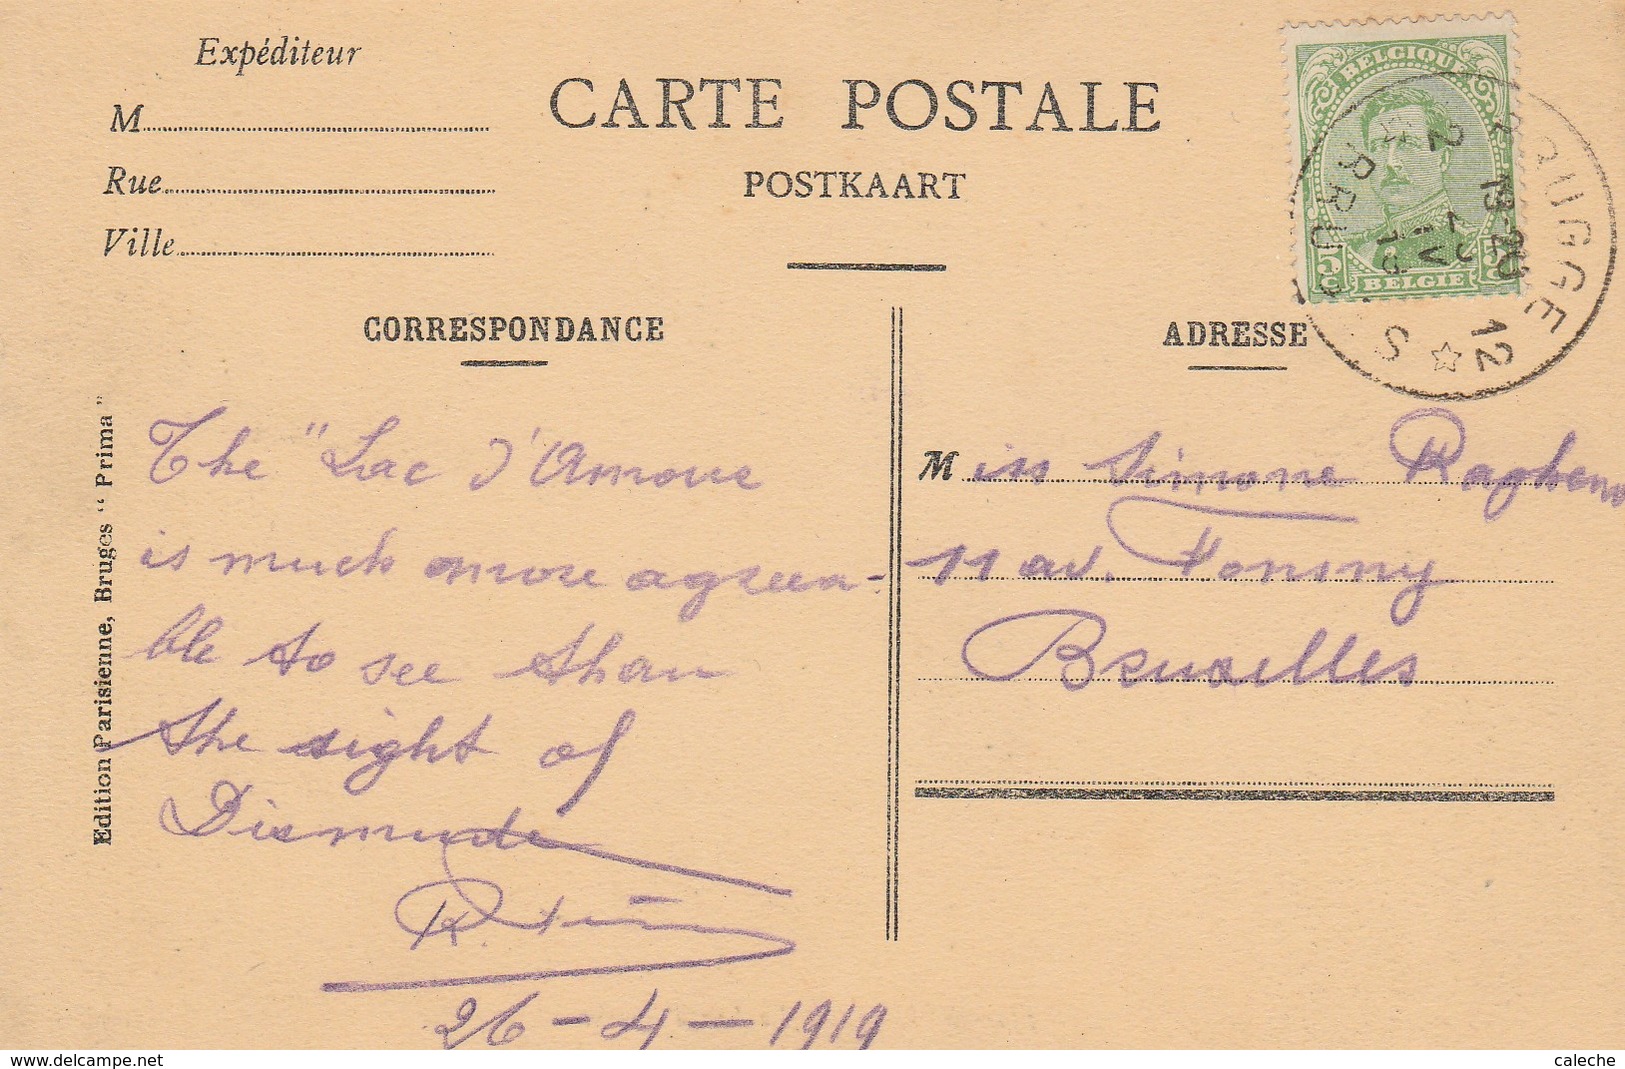 Expéditeur
M
Rue
Ville
CARTE POSTALE
POSTKAART
BELGIQUE
5c 5c
BELGIE
BRUGGE
BRUGES
12
CORRESPONDANCE
ADRESSE
Edition Parisienne, Bruges “ Prima ”
The "Lac d'Amour
is much more agreea-
ble to see than
the sight of
Dixmude
26 - 4 - 1919
Miss Simone
11 av.
Bruxelles
delcampe.net
caleche